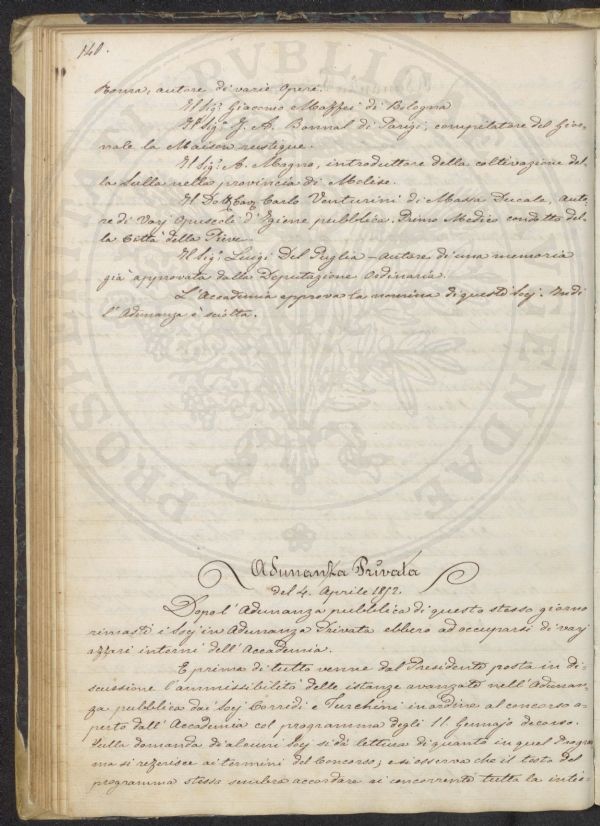 140.
Roma, autore di varie opere.
Il Sig.r Giacomo Maffei di Bologna
Il Sig.r J. A. Bonnal di Parigi, compilatore del Gior-
nale la Maison rustique.
Il Sig.r A. Magno, introduttore della coltivazione del-
la Sulla nella provincia di Molise.
Il Dott. Carlo Venturini di Massa Ducale, Auto-
re di Varj Opuscoli d'Igiene pubblica. Primo Medico condotto del-
la Città della Pieve.
Il Sig.r Luigi Del Puglia - Autore di una memoria
già approvata dalla Deputazione Ordinaria.
L'Accademia approva la nomina di questi Socj. Indi
l'Adunanza è sciolta.
Adunanza Privata
del 4. Aprile 1852.
Dopo l'Adunanza pubblica di questo stesso giorno
rimasti i Socj in Adunanza Privata ebbero ad occuparsi di varj
affari interni dell'Accademia.
E prima di tutto venne dal Presidente posta in di-
scussione l'ammissibilità delle istanze avanzate nell'Adunan-
za pubblica dai Socj Corridi e Turchini in ordine al concorso a-
perto dall'Accademia col programma degli 11 Gennajo decorso.
Sulla domanda di alcuni Socj si dà lettura di quanto in quel Program-
ma si referisce ai termini del Concorso; e si osserva che il testo del
programma stesso sembra accordare ai concorrenti tutta la inte-
PROSPERITATI PVBLICAE AVGENDAE